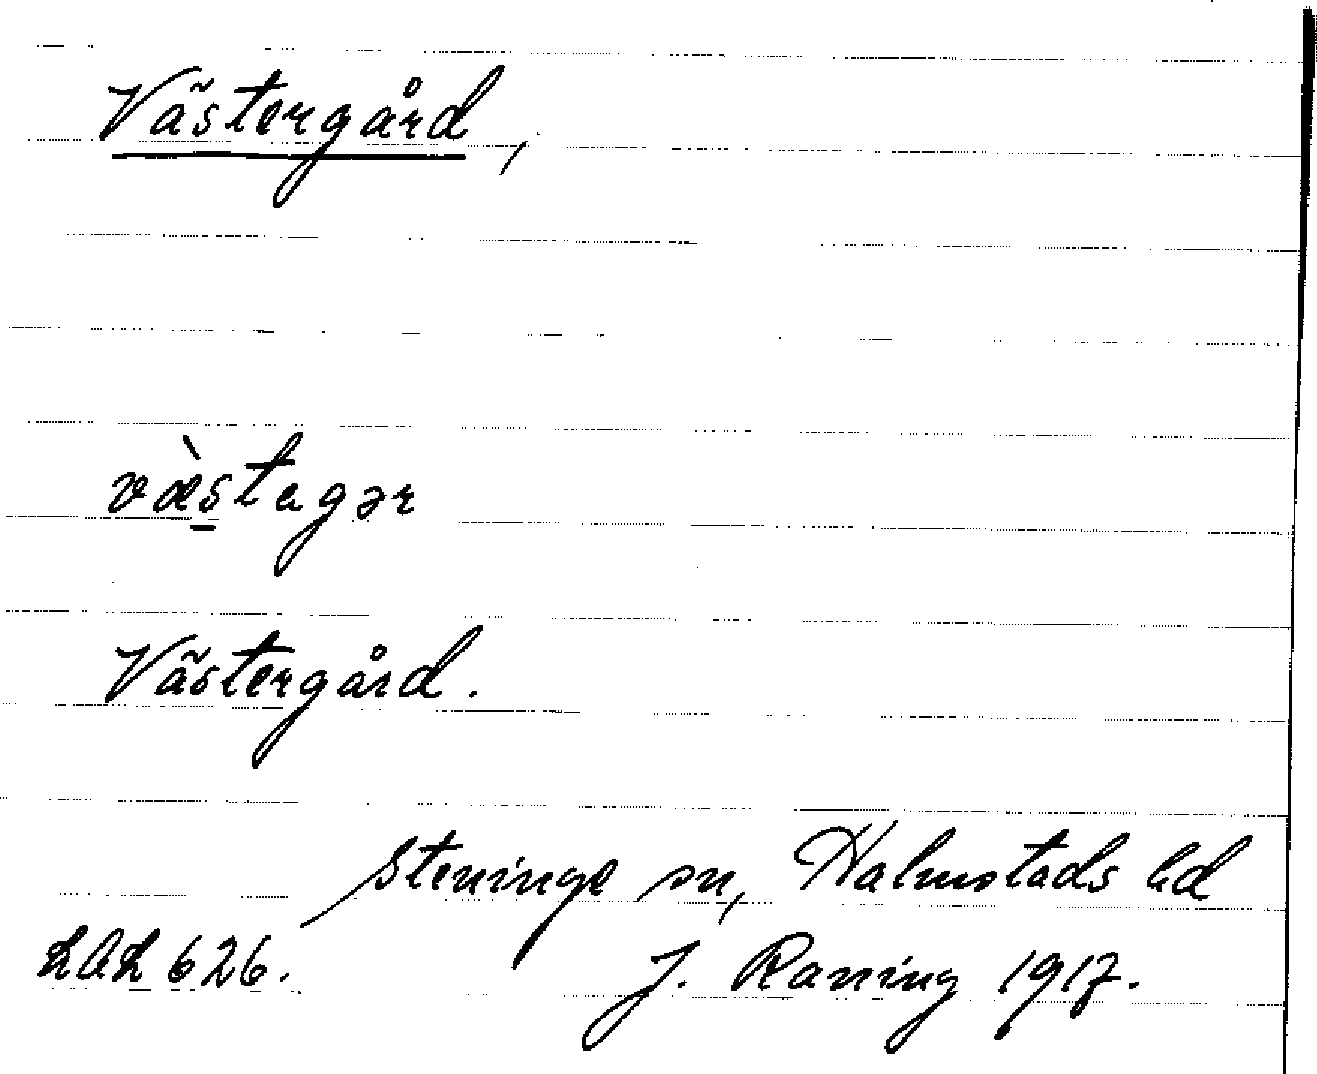 Västergård,
væ̀stagər
Västergård.
Steninge sn, Halmstads hd
LAL 626. J. Raning 1917.